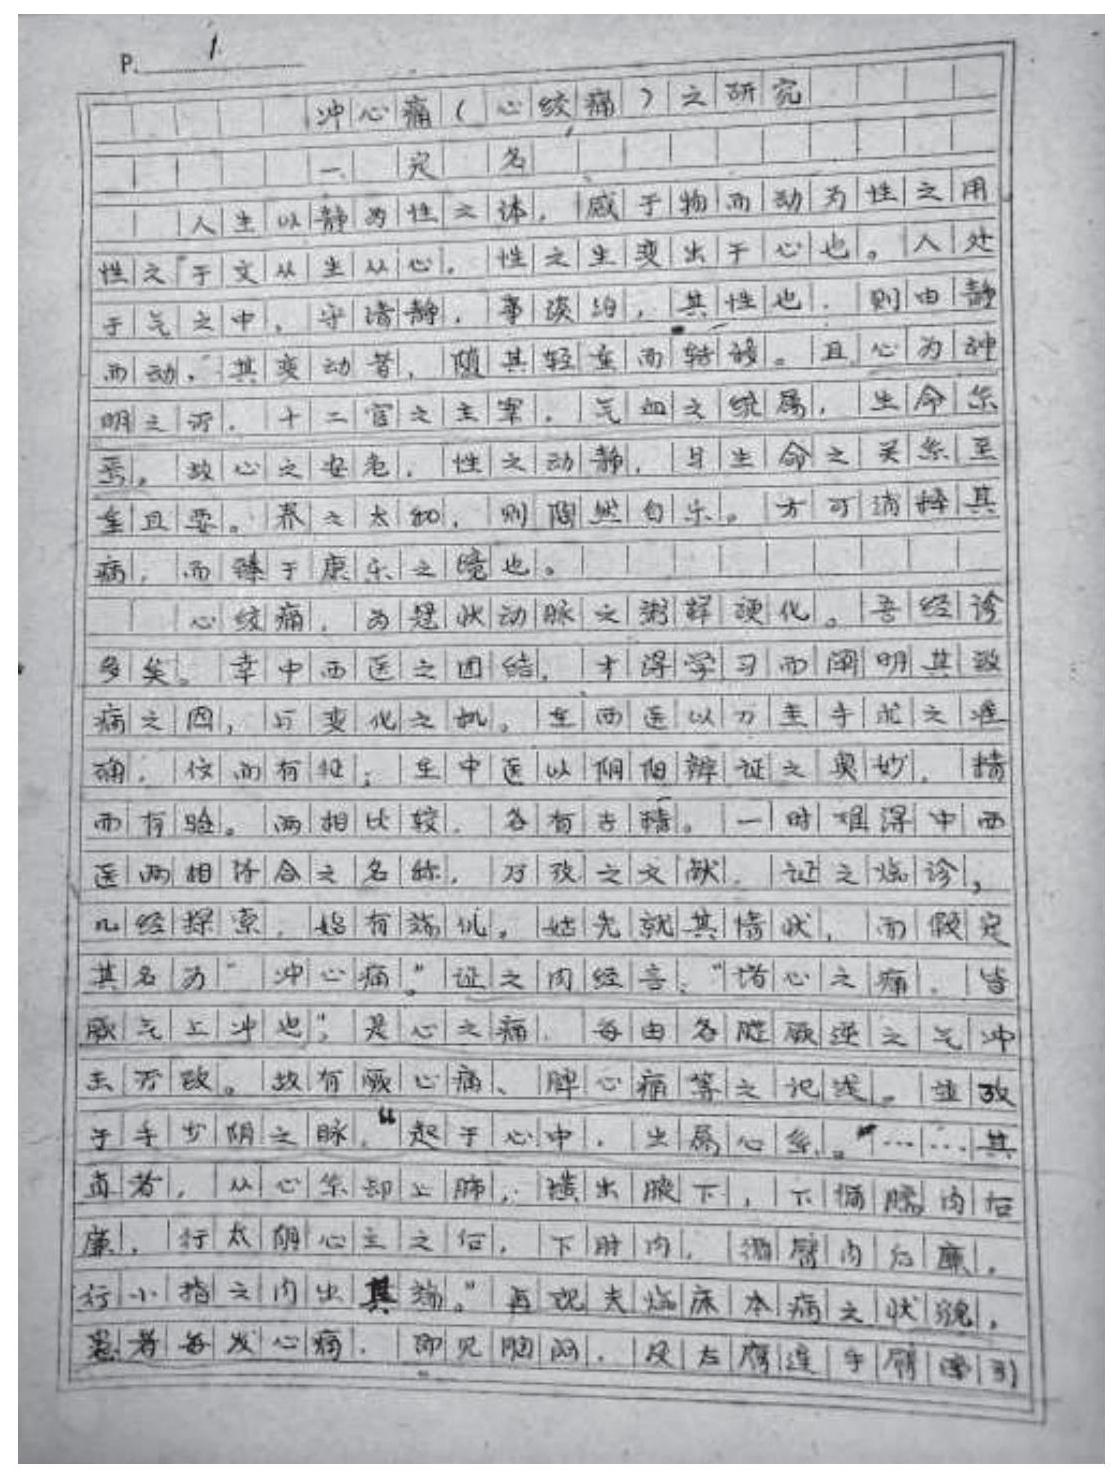 P. 1
冲心痛（心绞痛）之研究
一、定名
人生以静为性之体，感于物而动为性之用
性之于文从生从心。性之生变出于心也。人处
于气之中，守清静，事淡泊，其性也，则由静
而动，其变动者，随其轻重而转移。且心为神
明之所，十二官之主宰，气血之统属，生命系
焉。故心之安危，性之动静，与生命之关系至
重且要。养之太和，则陶然自乐。方可消释其
病，而臻于康乐之境也。
心绞痛，为冠状动脉之粥样硬化。吾经诊
多矣。幸中西医之团结，才得学习而阐明其致
病之因，与变化之机。在西医以万圭手术之准
确，信而有征；在中医以阴阳辨证之奥妙，精
而有验。两相比较，各有古精。一时难得中西
医两相符合之名称，乃考之文献，证之临诊，
几经探索，始有端倪。姑先就其情状，而假定
其名为“冲心痛。”证之内经言：“诸心之痛，皆
厥气上冲也”，是心之痛，每由各脏厥逆之气冲
击所致。故有厥心痛、脾心痛等之记述。并考
于手少阴之脉，“起于心中，出属心系。”……其
直者，从心系却上肺，横出腋下，下循臑内后
廉，行太阴心主之后，下肘内，循臂内后廉，
行小指之内出其端。”再观夫临床本病之状貌，
患者每发心痛，即见胸闷，及左膺连手臂牵引